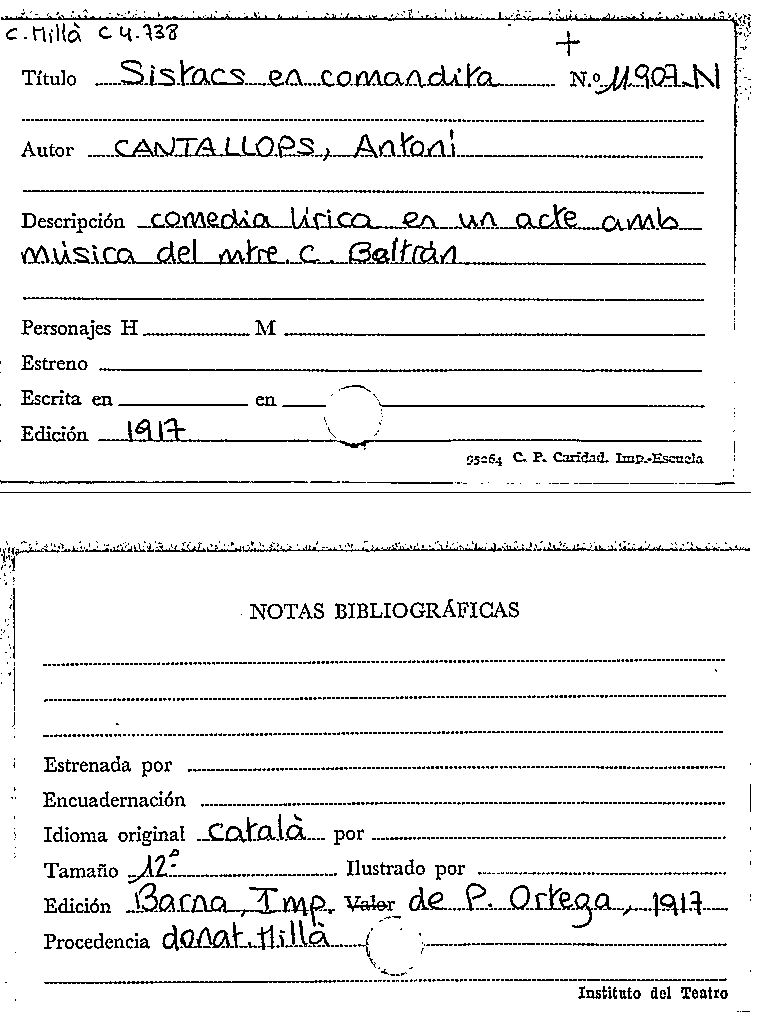 C. Millà C 4.738
+
Título Sistacs en comandita N.º 11907-N
Autor CANTALLOPS, Antoni
Descripción comedia lírica en un acte amb
música del mtre. C. Beltrán
Personajes H M
Estreno
Escrita en en
Edición 1917
95264 C. P. Caridad. Imp.-Escuela
NOTAS BIBLIOGRÁFICAS
Estrenada por
Encuadernación
Idioma original català por
Tamaño 12º Ilustrado por
Edición Barna, Imp. Valor de P. Ortega, 1917
Procedencia donat. Millà
Instituto del Teatro